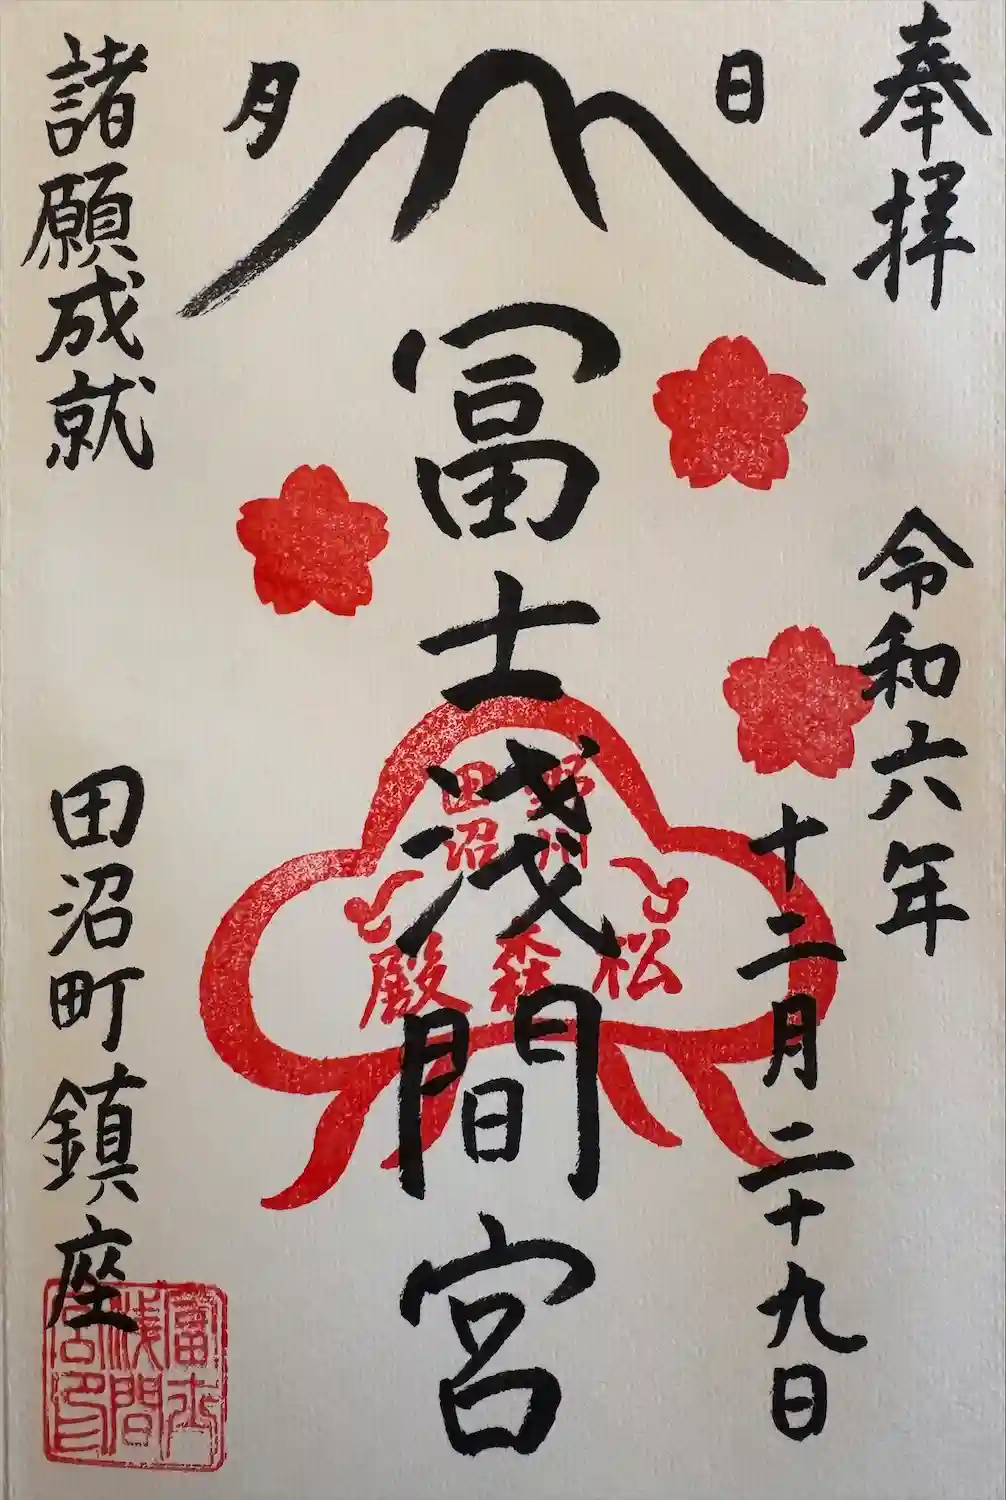 奉拝
令和六年
十二月二十九日
日
月
冨士浅間宮
野州
田沼
松森殿
諸願成就
田沼町鎮座
富士
浅間
宮印